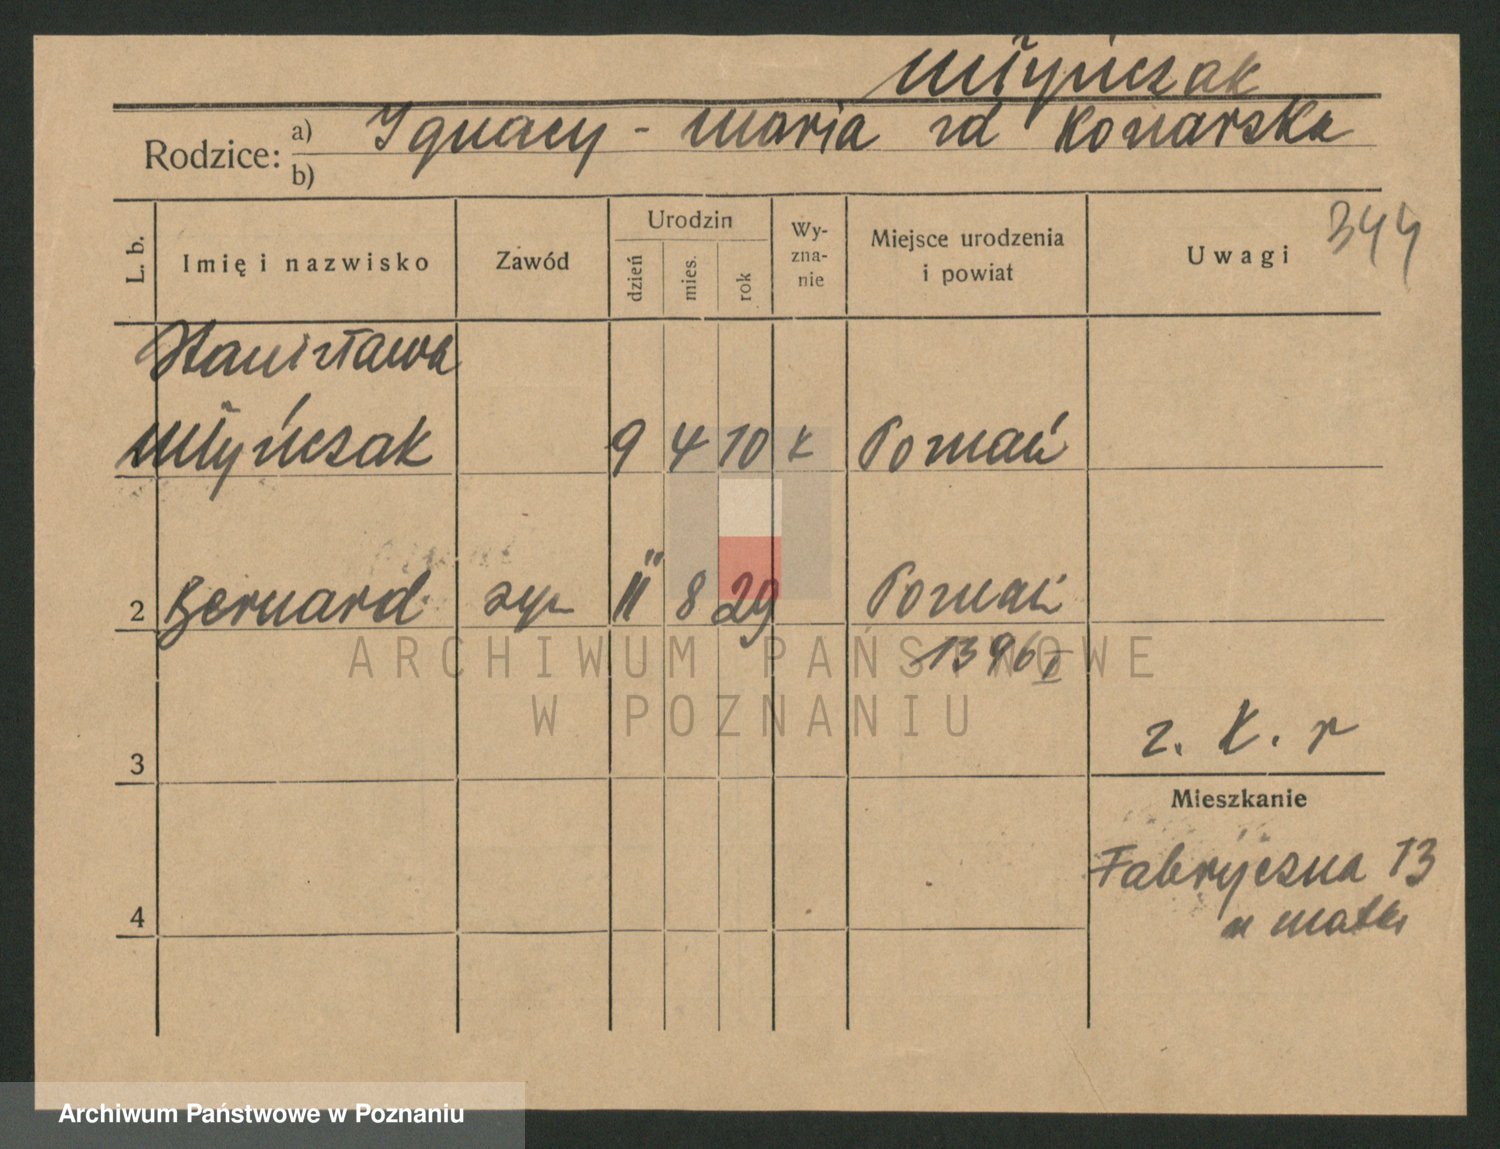 Młyńczak
Rodzice: a) Ignacy - Maria zd Konarska
b)
L. b. Imię i nazwisko Zawód Urodzin dzień mies. rok Wyznanie Miejsce urodzenia i powiat Uwagi 344
Stanisława
Młyńczak 9 4 10 k Poznań
2 Bernard syn 11 8 29 Poznań
1396 I
ARCHIWUM PAŃSTWOWE
W POZNANIU
z. K. r
3
Mieszkanie
Fabryczna 13
u matki
4
Archiwum Państwowe w Poznaniu